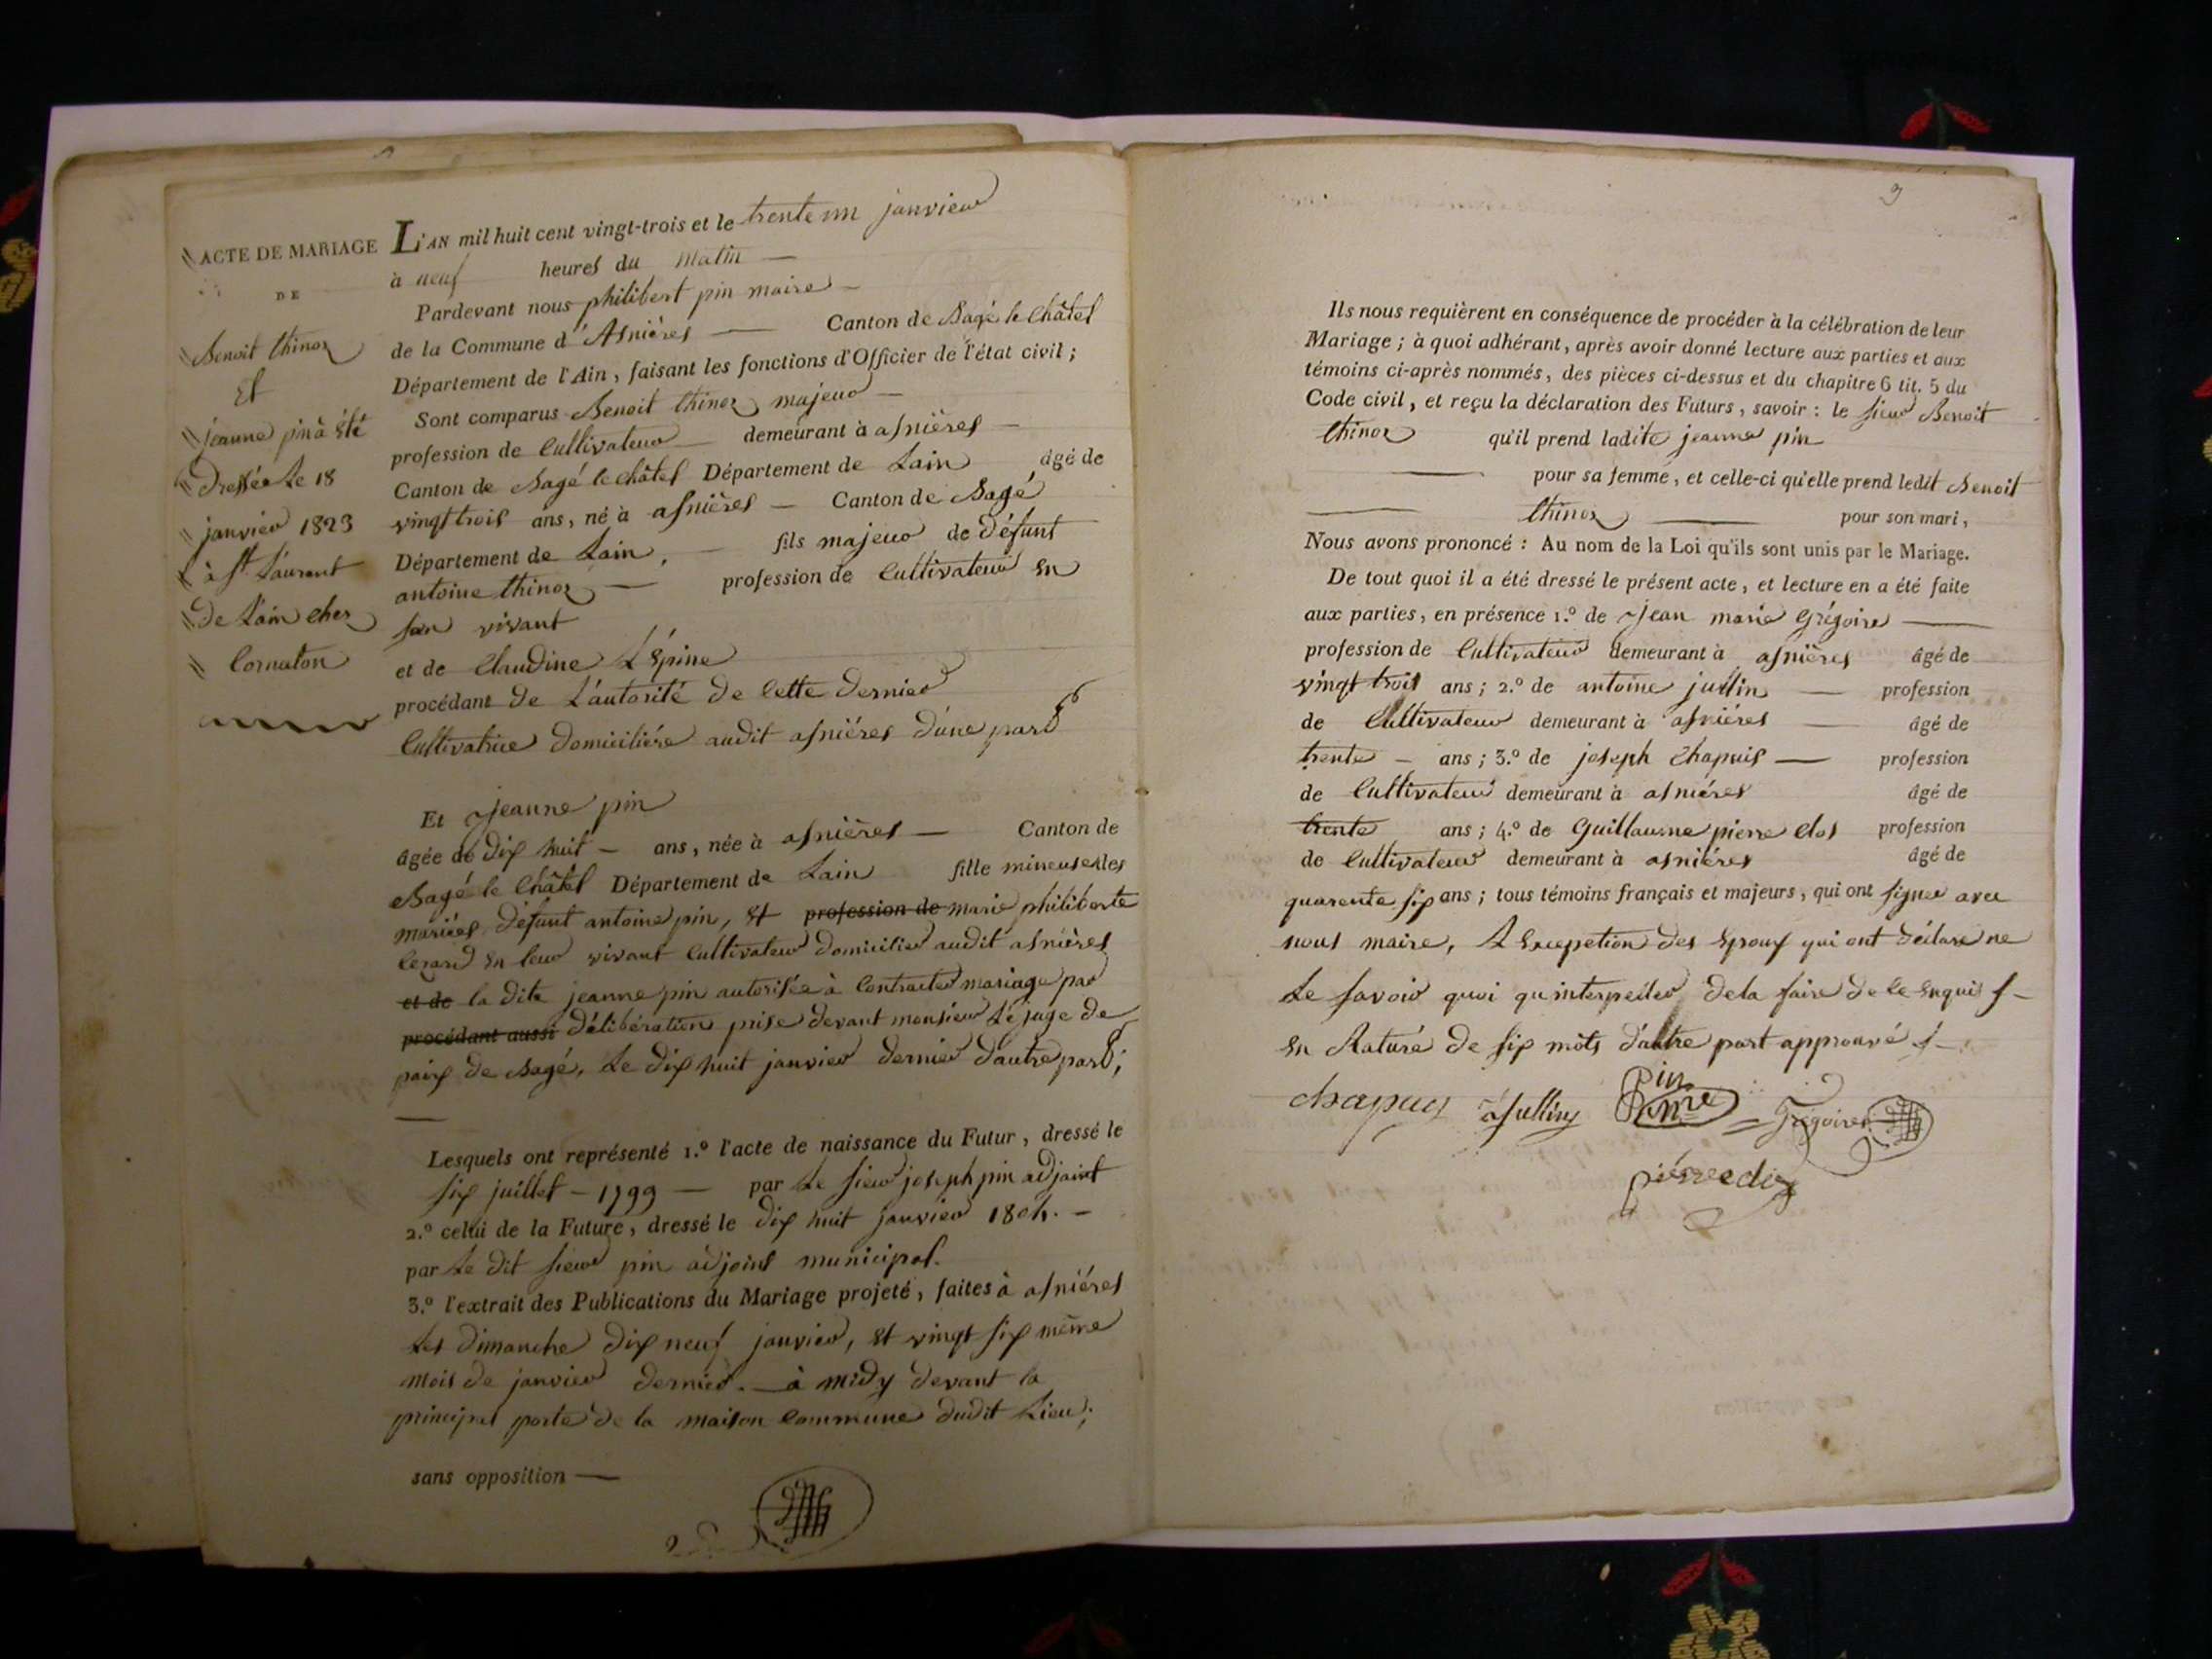 ACTE DE MARIAGE
DE
Benoit thinon
Et
jeanne pin à été
Dressée Le 18
janvier 1823
à St Laurent
de Lain chez
Cornaton
L'AN mil huit cent vingt-trois et le trente un janvier
à neuf heures du matin
Pardevant nous philibert pin maire
de la Commune d'Asnières Canton de Bagé le Châtel
Département de l'Ain, faisant les fonctions d'Officier de l'état civil;
Sont comparus Benoit thinon majeur
profession de Cultivateur demeurant à asnières
Canton de Bagé le châtel Département de Lain âgé de
vingt trois ans, né à asnières Canton de Bagé
Département de Lain, fils majeur de défunt
antoine thinon profession de Cultivateur En
son vivant
et de Claudine L'Epine
procédant de L'autorité de Cette dernier
Cultivatrice domicilière audit asniéres d'une part
Et jeanne pin
âgée de dix huit ans, née à asnières Canton de
Bagé le Châtel Département de Lain fille mineuse des
mariées défunt antoine pin, Et profession de marie philiberte
en leur vivant Cultivateur domicilier audit asnières
et de la dite jeanne pin autorisée à Contracter mariage par
procédant aussi délibération prise devant monsieur Le juge de
paix de Bagé, Le dix huit janvier dernier d'autre part;
Lesquels ont représenté 1.º l'acte de naissance du Futur, dressé le
six juillet - 1799 par Le sieur joseph pin adjoint
2.º celui de la Future, dressé le dix huit janvier 1804.
par Le dit sieur pin adjoint municipal.
3.º l'extrait des Publications du Mariage projeté, faites à asniéres
Les dimanche dix neuf janvier, Et vingt six même
mois de janvier dernier. à midy devant la
principal porte de la maison Commune dudit Lieu;
sans opposition
3
Ils nous requièrent en conséquence de procéder à la célébration de leur
Mariage; à quoi adhérant, après avoir donné lecture aux parties et aux
témoins ci-après nommés, des pièces ci-dessus et du chapitre 6 tit. 5 du
Code civil, et reçu la déclaration des Futurs, savoir: le sieur Benoit
thinon qu'il prend ladite jeanne pin
pour sa femme, et celle-ci qu'elle prend ledit Benoit
thinon pour son mari,
Nous avons prononcé: Au nom de la Loi qu'ils sont unis par le Mariage.
De tout quoi il a été dressé le présent acte, et lecture en a été faite
aux parties, en présence 1.º de jean marie Grégoire
profession de Cultivateur demeurant à asnières âgé de
vingt trois ans; 2.º de antoine jullin profession
de Cultivateur demeurant à asniéres âgé de
trente ans; 3.º de joseph Chapuis profession
de Cultivateur demeurant à asniéres âgé de
trente ans; 4.º de Guillaume pierre clos profession
de Cultivateur demeurant à asniéres âgé de
quarente six ans; tous témoins français et majeurs, qui ont signer avec
nous maire, A Excepetion des Epoux qui ont déclaré ne
Le savoir quoi qu'interpeller dela faire de Ce Enquis
En Raturé de six mots d'autre part approuvé
chapuy a jullin Pin Mre Grégoire